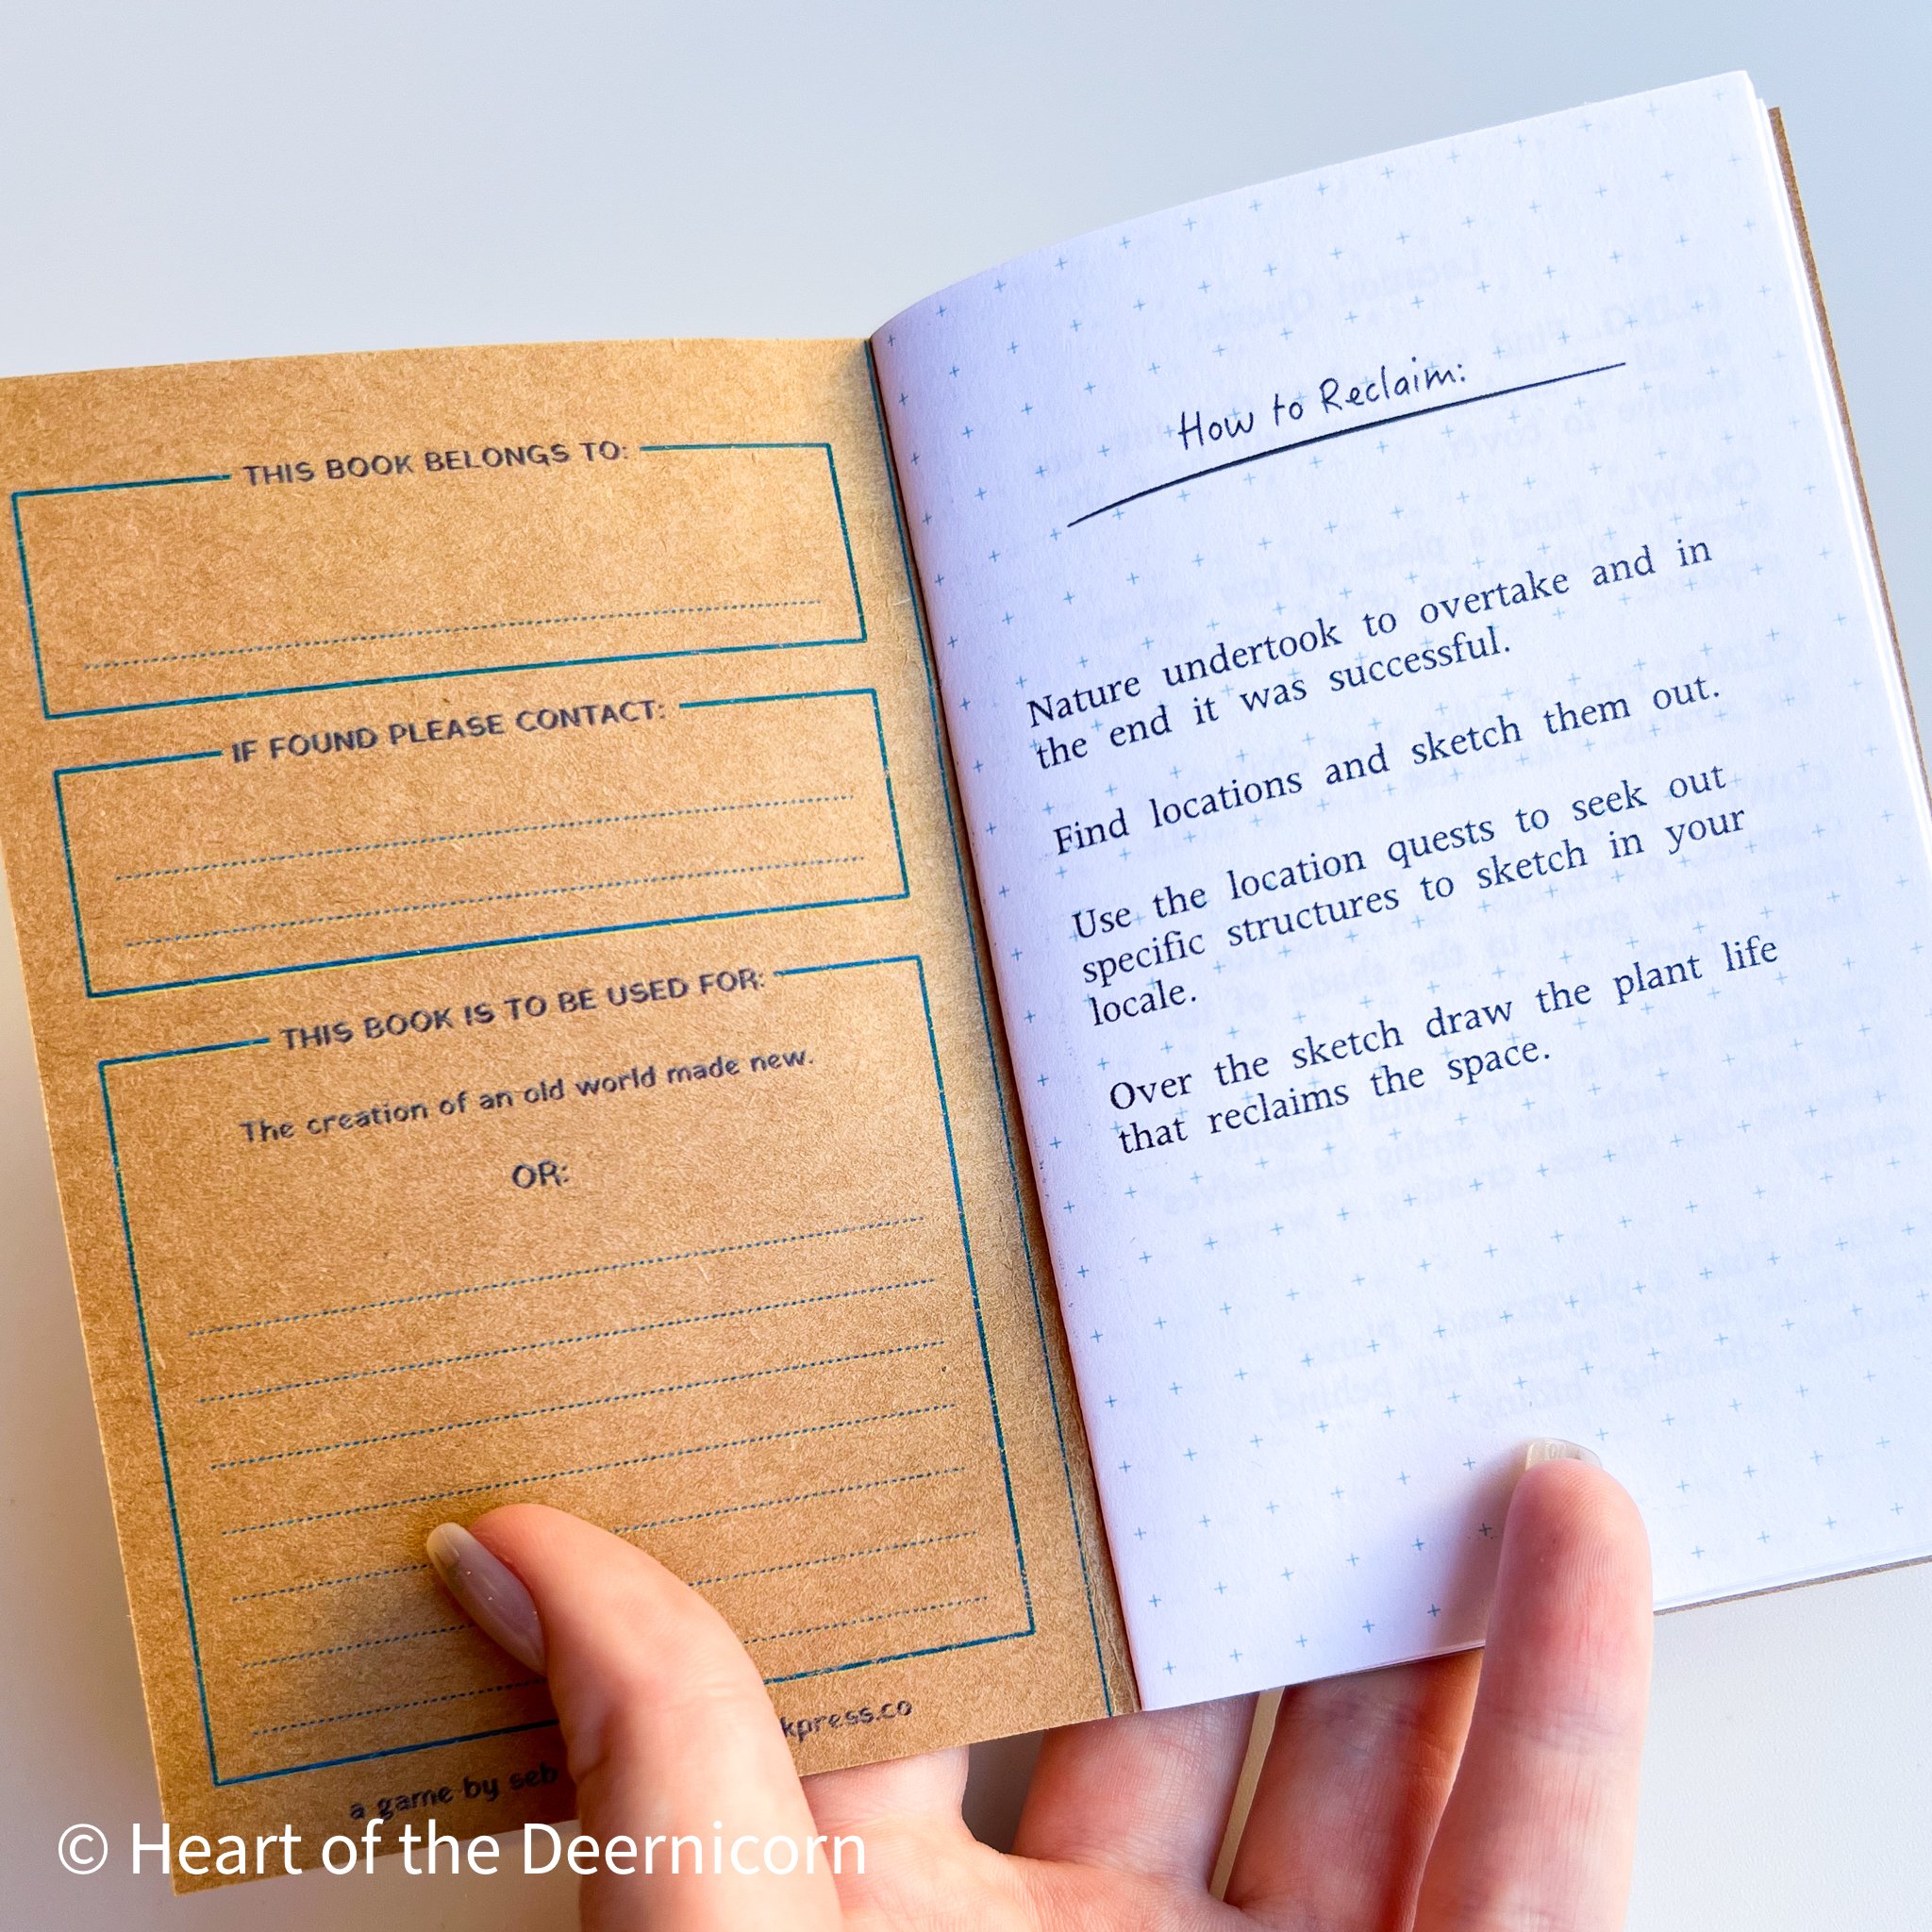 THIS BOOK BELONGS TO:
IF FOUND PLEASE CONTACT:
THIS BOOK IS TO BE USED FOR:
The creation of an old world made new.
OR:
a game by seb
kpress.co
How to Reclaim:
Nature undertook to overtake and in
the end it was successful.
Find locations and sketch them out.
Use the location quests to seek out
specific structures to sketch in your
locale.
Over the sketch draw the plant life
that reclaims the space.
© Heart of the Deernicorn